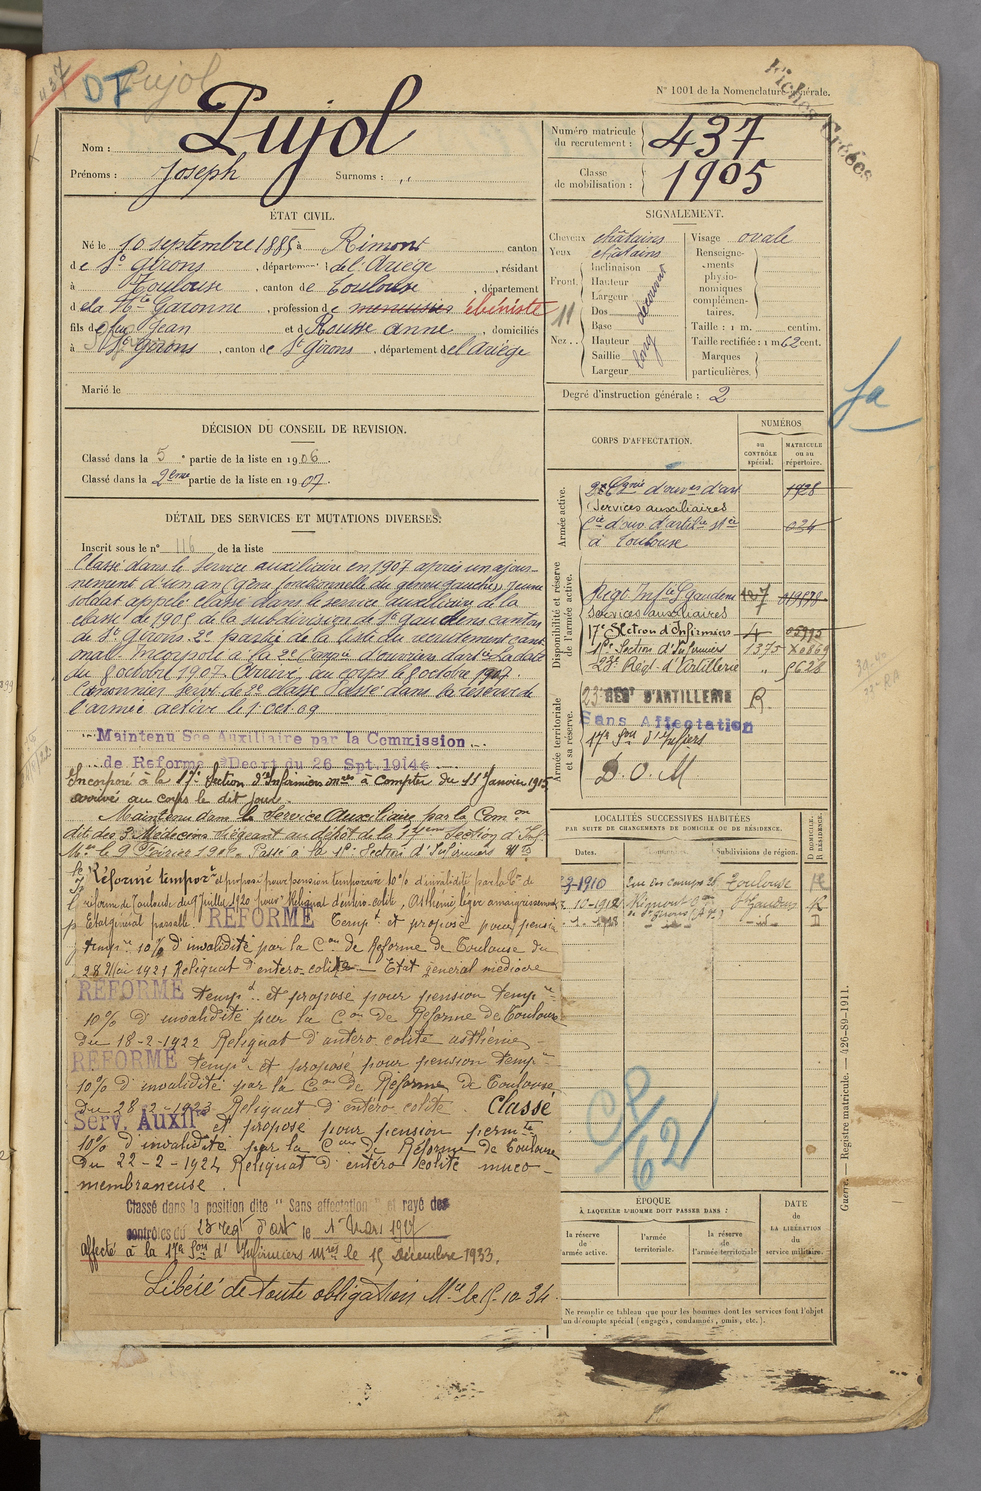 437
DF
Pujol
N° 1001 de la Nomenclature générale.
Fiches Créées
Nom : Pujol
Prénoms : Joseph Surnoms : ,,
Numéro matricule du recrutement : 437
Classe de mobilisation : 1905
ÉTAT CIVIL.
Né le 10 septembre 1885 à Rimont canton
de St Girons, département de l'Ariège, résidant
à Toulouse, canton de Toulouse, département
de la Hte Garonne, profession de menuisier ébéniste
fils de feu Jean et de Rousse Anne, domiciliés
à St Girons, canton de St Girons, département de l'Ariège
Marié le
SIGNALEMENT.
Cheveux châtains
Yeux châtains
Front. Inclinaison
Hauteur
Largeur
découvert
Nez.. Dos
Base
Hauteur
Saillie
Largeur
long
11
Visage ovale
Renseignements physionomiques complémentaires.
Taille : 1 m. centim.
Taille rectifiée : 1 m 62 cent.
Marques particulières.
Degré d'instruction générale : 2
fa
DÉCISION DU CONSEIL DE REVISION.
Classé dans la 5e partie de la liste en 1906.
Classé dans la 2eme partie de la liste en 1907.
DÉTAIL DES SERVICES ET MUTATIONS DIVERSES.
Inscrit sous le n° 116 de la liste
Classé dans le Service auxiliaire en 1907 après un ajour-
nement d'un an (gêne fonctionnelle du genou gauche). Jeune
soldat appelé classé dans le service auxiliaire de la
classe de 1905 de la subdivision de St Gaudens canton
de St Girons. 2e partie de la liste du recrutement cant
onal. Incorporé à la 2e Compie d'ouvriers d'artie à la date
du 8 octobre 1907. Arrivé au corps le 8 octobre 1907.
Canonnier servt de 2e classe. Passé dans la réserve de
l'armée active le 1 oct 09
Maintenu Sce Auxiliaire par la Commission
de Réforme Décrt du 26 Spt. 1914
Incorporé à la 17e Section d'Infirmiers mres à Compter du 11 Janvier 1915
arrivé au corps le dit jour.
Maintenu dans le Service Auxiliaire par la Comon
dite des 3 Médecins siégeant au dépôt de la 17eme Section d'Inf.
Mre le 9 Février 1916. Passé à la 1e Section d'Infirmiers
Réformé tempore et proposé pour pension temporaire 10% d'invalidité par la Con de
réforme de Toulouse du 9 juillet 1920 pour Reliquat d'entéro-colite, Asthénie léger amaigrissement
Etat général passable. RÉFORMÉ Tempt et proposé pour pension
tempre 10% d'invalidité par la Con de Réforme de Toulouse du
28 Mai 1921 Reliquat d'entéro-colite — Etat général médiocre
RÉFORMÉ tempt et proposé pour pension tempre
10% d'invalidité par la Con de Réforme de Toulouse
du 18-2-1922 Reliquat d'entéro colite asthénie
RÉFORMÉ tempt et proposé pour pension tempre
10% d'invalidité par la Con de Réforme de Toulouse
du 28-2-1923 Reliquat d'entéro colite. Classé
Serv. Auxilre et proposé pour pension permte
10% d'invalidité par la Con de Réforme de Toulouse
du 22-2-1924 Reliquat d'entéro colite muco-
membraneuse.
Classé dans la position dite "Sans affectation" et rayé des
contrôles du 23 regt d'art le 1 Mars 1927
affecté à la 17e Son d'Infirmiers Mres le 15 Décembre 1933.
Libéré de toute obligation Mre le 15-10-34
CORPS D'AFFECTATION.
NUMÉROS
au CONTRÔLE spécial.
MATRICULE ou au répertoire.
Armée active.
2e Cgnie d'ouvrs d'art 1928
Services auxiliaires
Cie d'ouv. d'artilie 024
à Toulouse
Disponibilité et réserve de l'armée active.
Regt Infie St Gaudens 127
Services auxiliaires
17e Section d'Infirmiers 4
1re Section d'Infirmiers 1375
23e Régt d'Artillerie ,,
Armée territoriale et sa réserve.
23e REGt D'ARTILLERIE R.
Sans Affectation
17e Son d'Infiers
D. O. M
LOCALITÉS SUCCESSIVES HABITÉES
PAR SUITE DE CHANGEMENTS DE DOMICILE OU DE RÉSIDENCE.
Dates. Communes. Subdivisions de région. D DOMICILE. R RÉSIDENCE.
1910 Rue des Champs Toulouse R
10-1912 Rimont St Gaudens R
1-1923 St Girons D
CP/62
ÉPOQUE
À LAQUELLE L'HOMME DOIT PASSER DANS :
la réserve de l'armée active.
l'armée territoriale.
la réserve de l'armée territoriale
DATE de LA LIBÉRATION du service militaire.
Ne remplir ce tableau que pour les hommes dont les services font l'objet
d'un décompte spécial (engagés, condamnés, omis, etc.).
Guerre. — Registre matricule. — 426-89-1911.